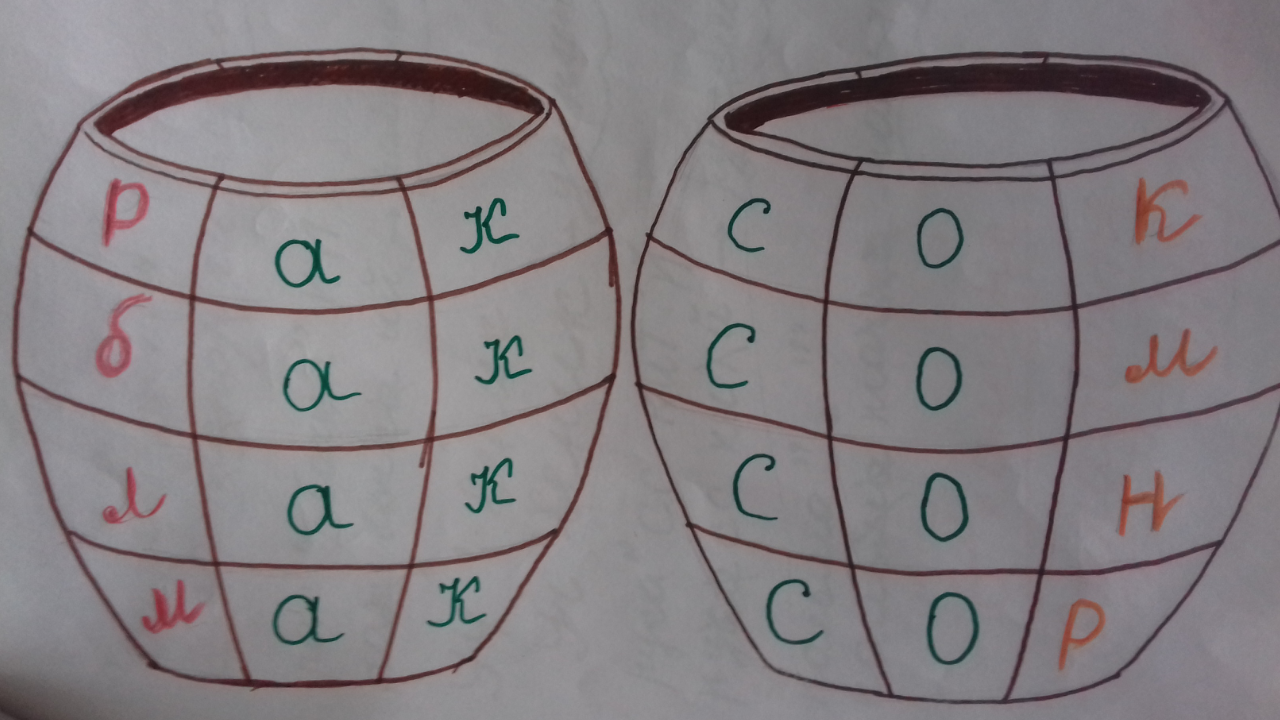 рак
бак
лак
мак
сок
сом
сон
сор